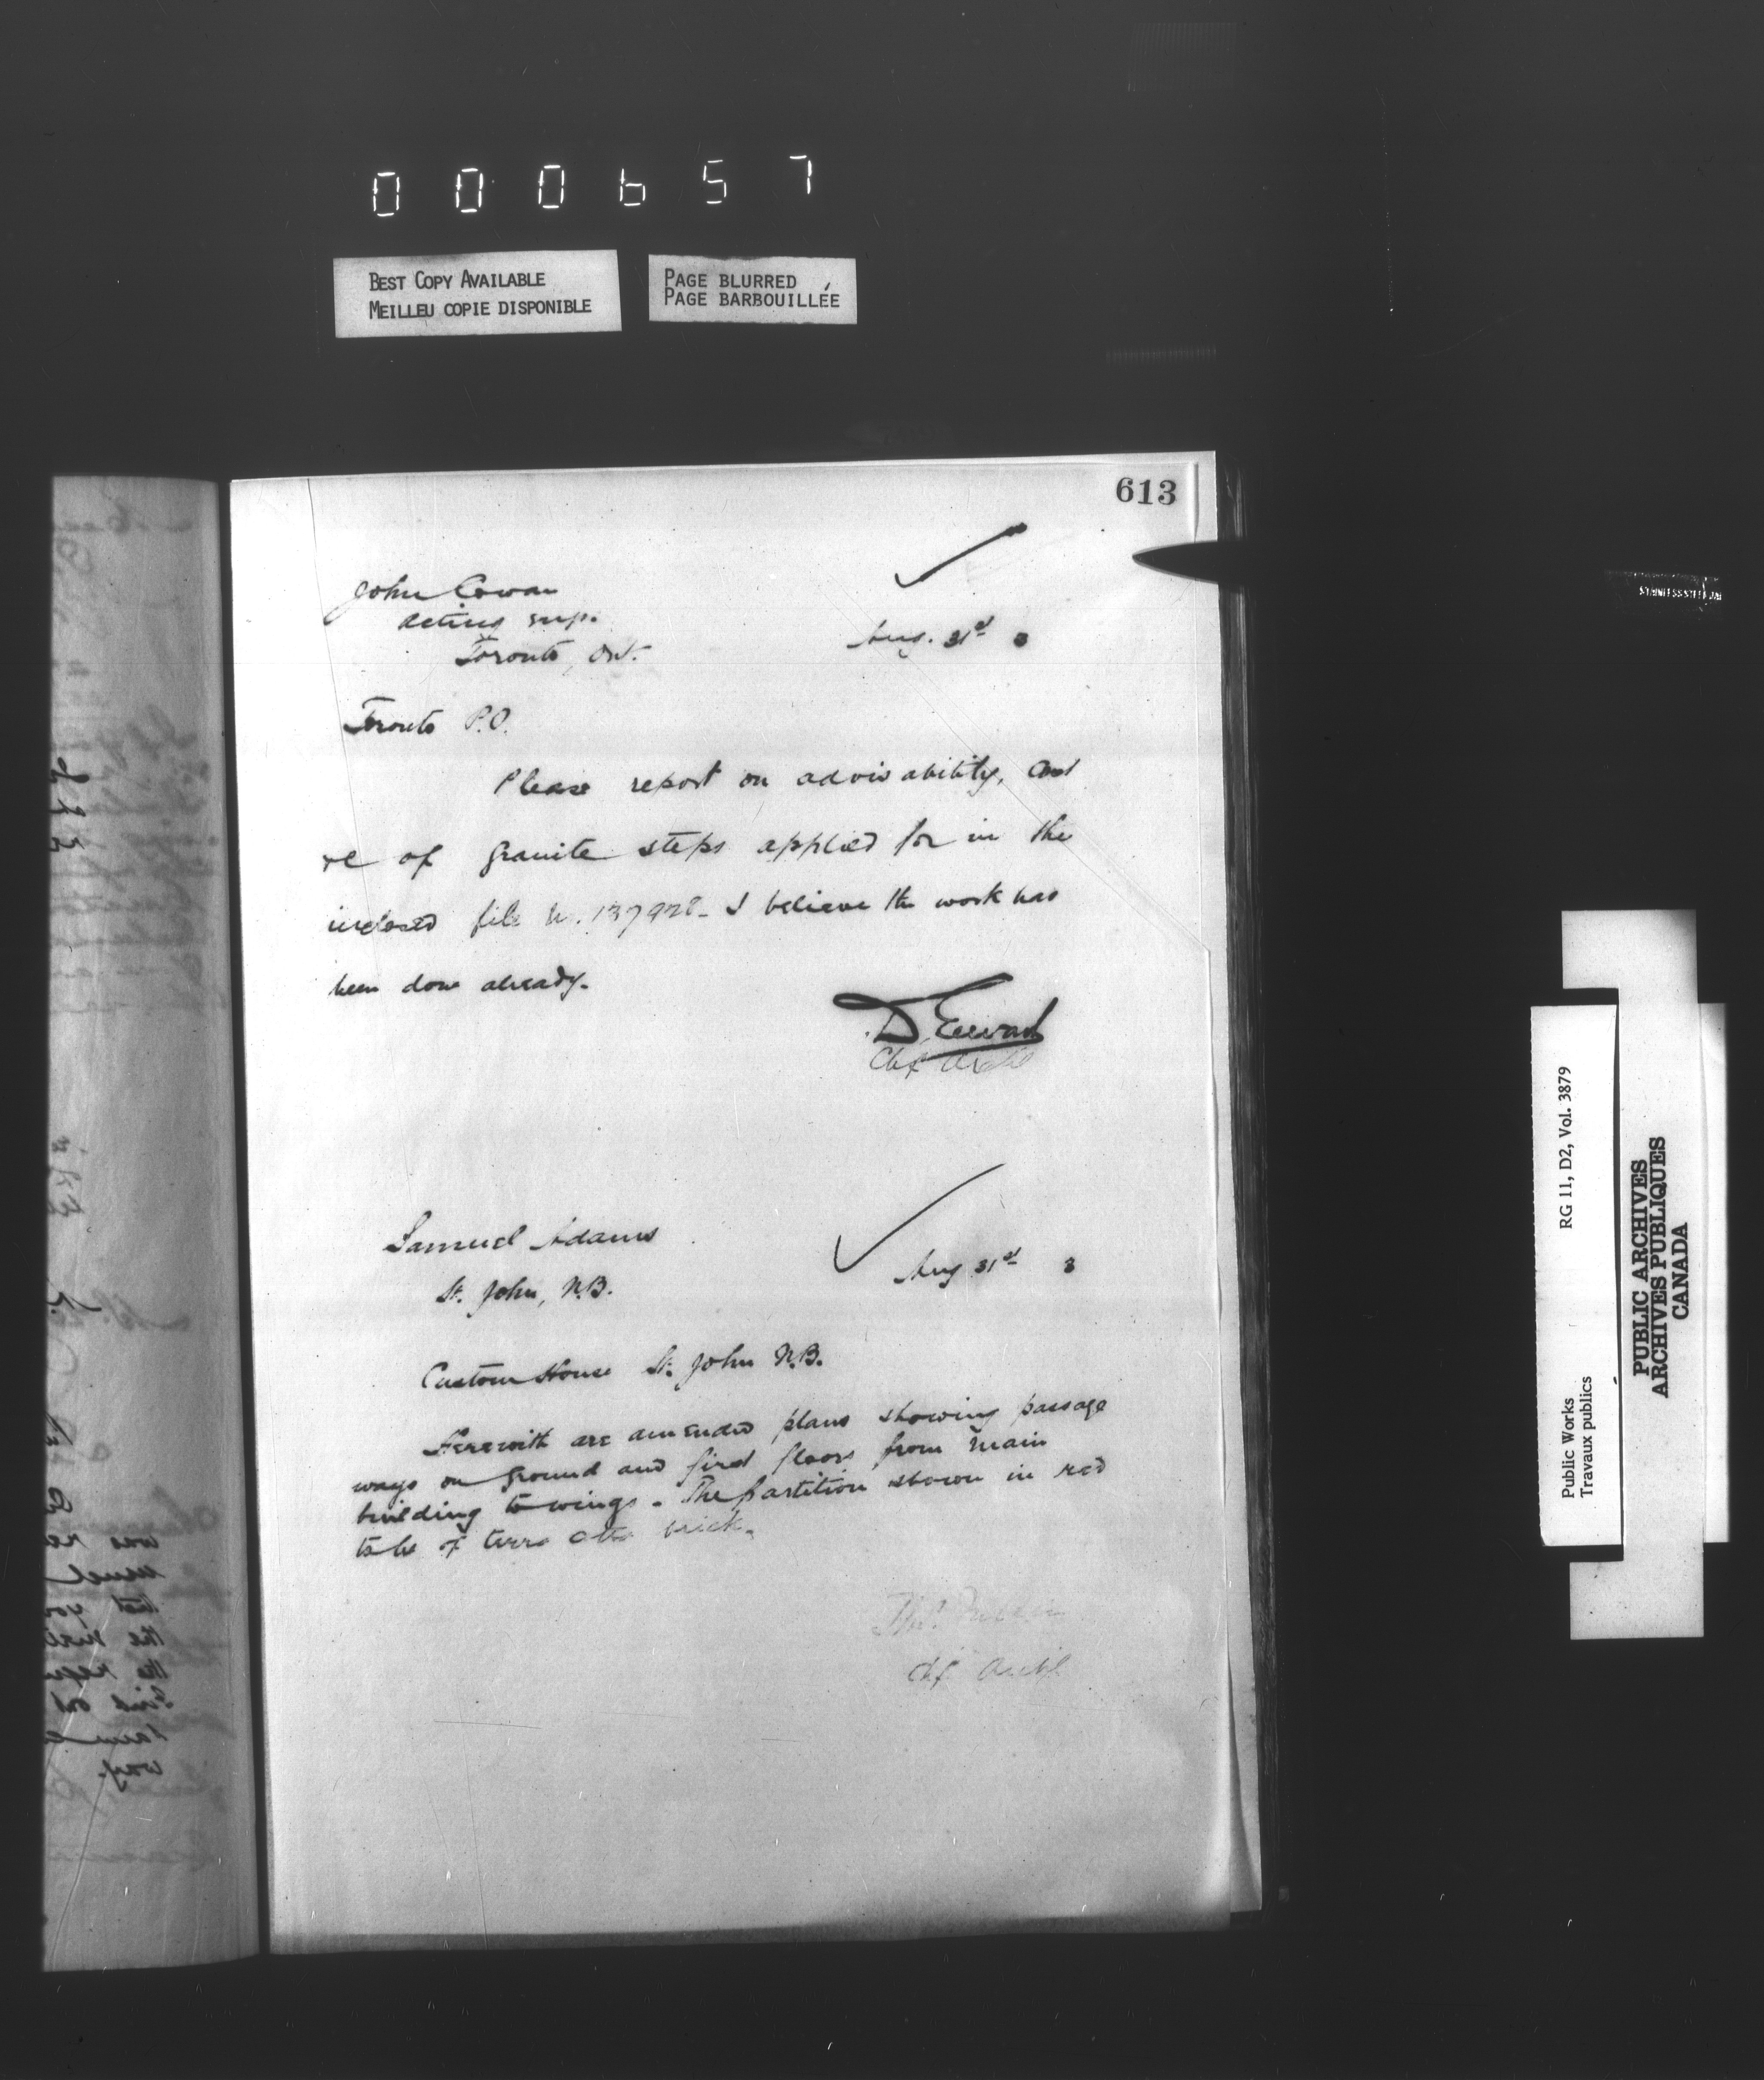 000657
BEST COPY AVAILABLE
MEILLEU COPIE DISPONIBLE
PAGE BLURRED
PAGE BARBOUILLÉE
613
John Cowan
acting sup.
Toronto, Ont.
Aug. 31st 3
Toronto P.O.
Please report on advisability, cost
re of granite steps applied for in the
inclosed file N. 137928 - I believe the work has
been done already.
D. Ewart
Chf Archt
Samuel Adams
St. John, N.B.
Aug 31st 3
Custom House St. John N.B.
Herewith are amended plans showing passage
ways on ground and first floors from main
building to wings. The partition shown in red
to be of terra cotta brick.
Thos. Fuller
Chf Archt
RG 11, D2, Vol. 3879
Public Works
Travaux publics
PUBLIC ARCHIVES
ARCHIVES PUBLIQUES
CANADA